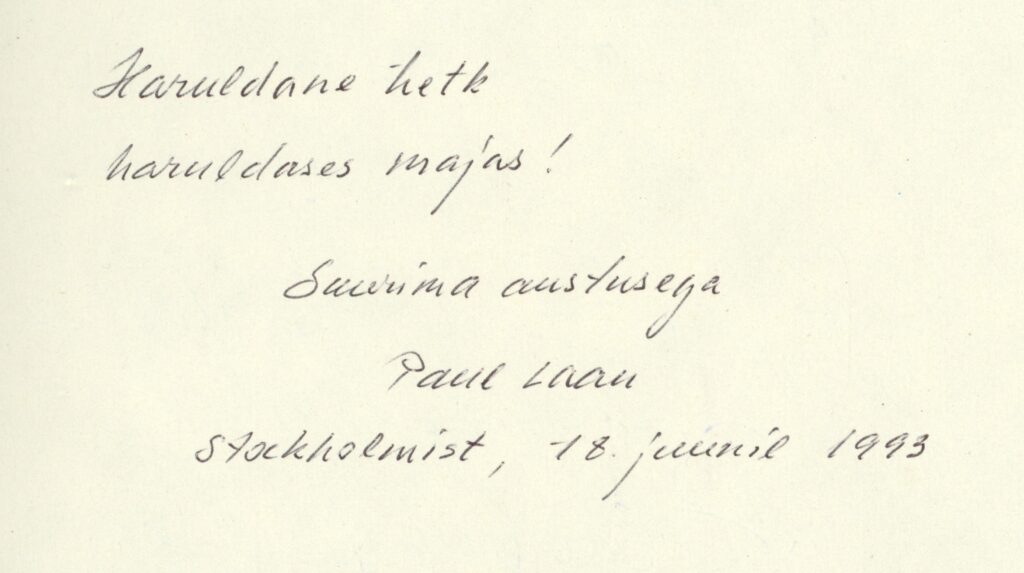 Haruldane hetk
haruldases majas!
Suurima austusega
Paul Laan
Stockholmist, 18. juunil 1993